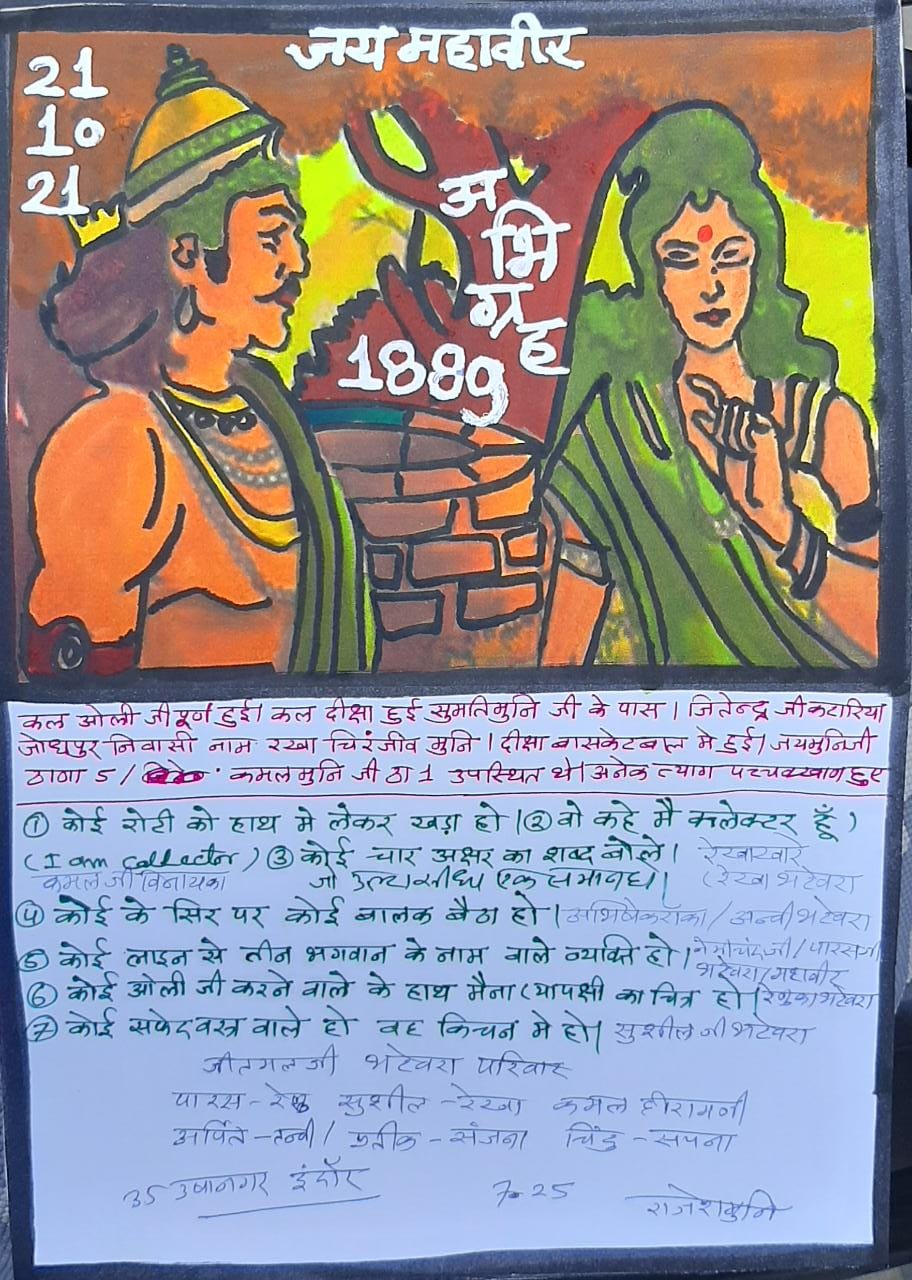 जय महावीर
21
10
21
अ
भि
ग्र
ह
1889
कल ओली जी पूर्ण हुई। कल दीक्षा हुई सुमतिमुनि जी के पास। जितेन्द्र जी कटारिया
जोधपुर निवासी नाम रखा चिरंजीव मुनि। दीक्षा बासकेटबाल मे हुई। जयमुनिजी
ठाणा 5/ कमलमुनि जी ठा 1 उपस्थित थे। अनेक त्याग पच्चक्खाण हुए
① कोई रोटी को हाथ मे लेकर खड़ा हो। ② वो कहे मै कलेक्टर हूँ)
(I am collector) ③ कोई चार अक्षर का शब्द बोले। रेखाखारे
कमल जी विनायका जो उल्टा सीधा एक समान हो। (रेखा भटेवरा
④ कोई के सिर पर कोई बालक बैठा हो। अभिषेक रॉका/ अन्वी भटेवरा
⑤ कोई लाइन से तीन भगवान के नाम वाले व्यक्ति हो। नेमीचंद जी/ पारसजी
भटेवरा/ महावीर
⑥ कोई ओली जी करने वाले के हाथ मैना (या पक्षी का चित्र हो। रेणुका भटेवरा
⑦ कोई सफेद वस्त्र वाले हो वह किचन मे हो। सुशील जी भटेवरा
जीतमल जी भटेवरा परिवार
पारस - रेणु सुशील - रेखा कमल हीरामनी
अर्पित - तन्वी/ प्रतीक - संजना चिंटु - सपना
35 उषानगर इंदौर 7-25 राजेशमुनि